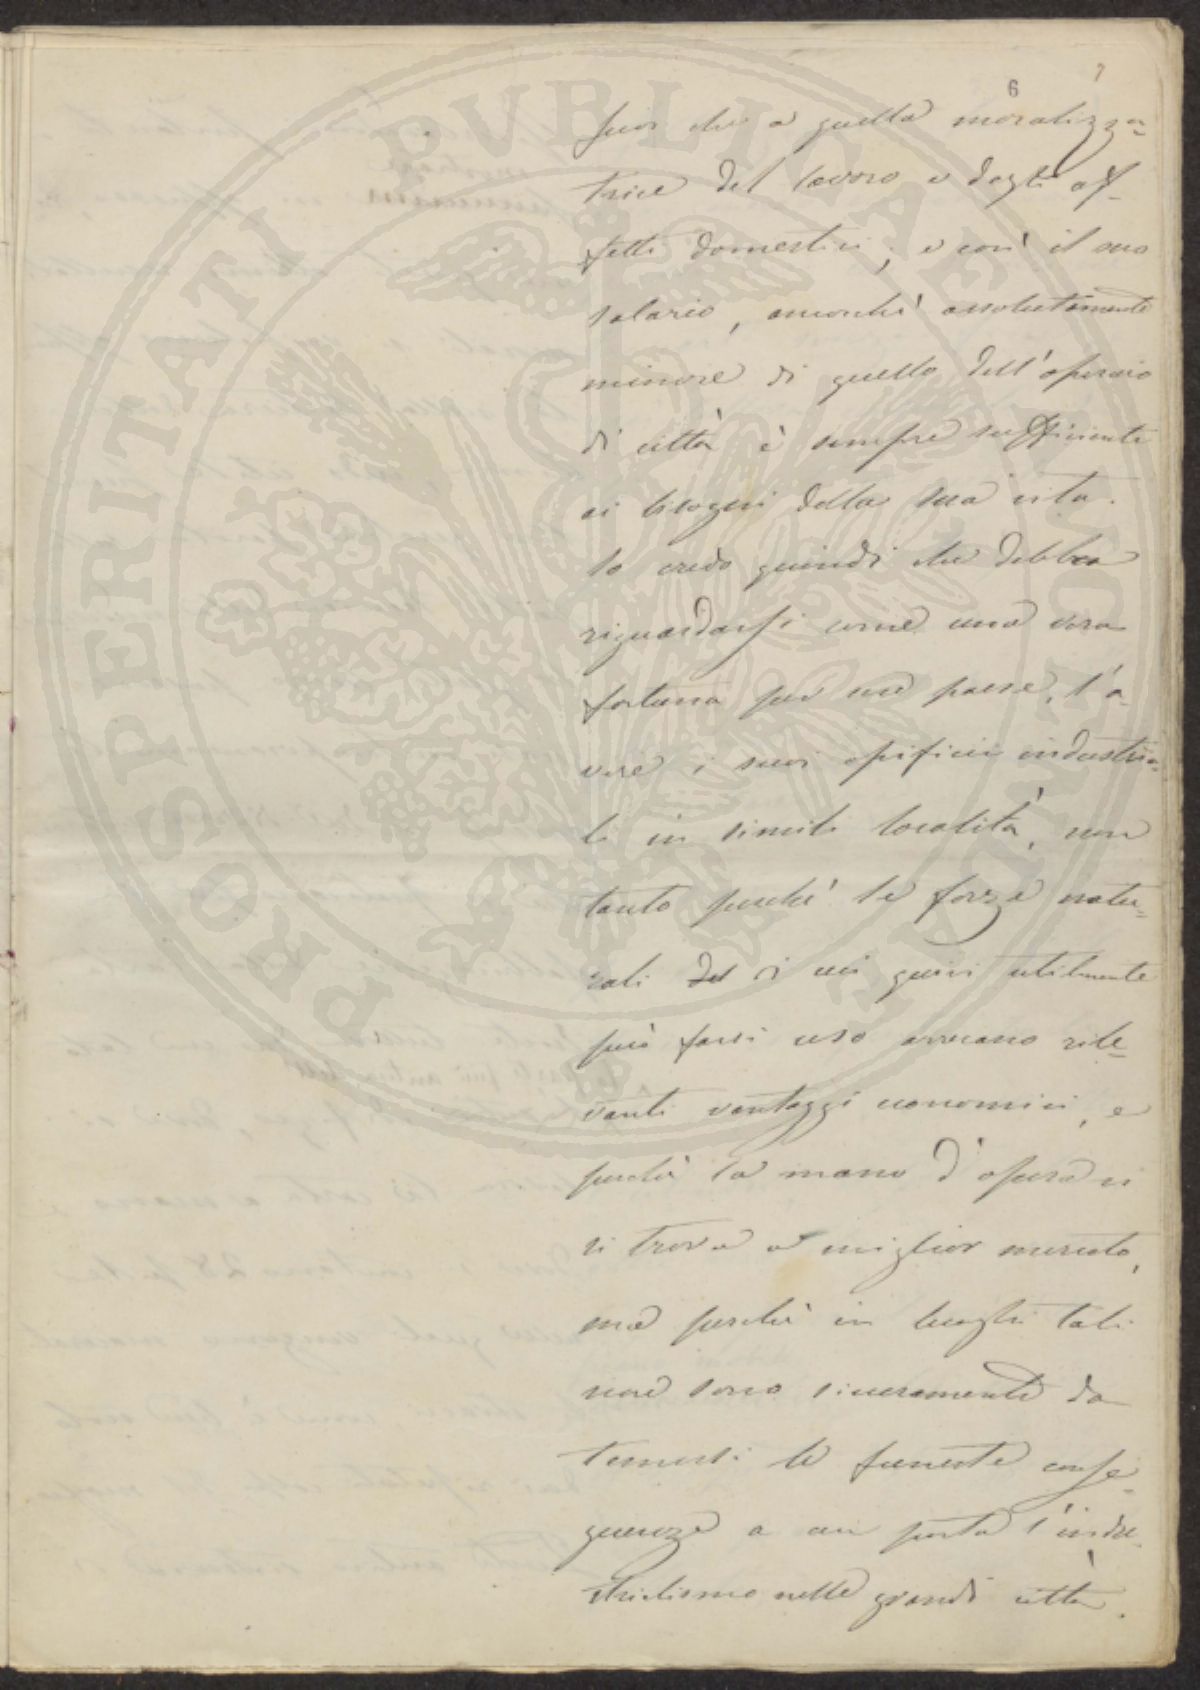 6 7
fuor che a quella moralizza=
trice del lavoro e degli af=
fetti domestici; e così il suo
salario, ancorchè assolutamente
minore di quello dell'operaio
di città è sempre sufficiente
ai bisogni della sua vita.
Io credo quindi che debba
riguardarsi come una vera
fortuna per un paese, l'a=
vere i suoi opifici industria=
li in simili località, non
tanto perchè le forze natu=
rali del di cui quivi utilmente
può farsi uso arrecano rile=
vanti vantaggi economici, e
perchè la mano d'opera vi
si trova a miglior mercato,
ma perchè in luoghi tali
non sono sicuramente da
temersi le funeste conse=
guenze a cui porta l'indu=
strialismo nelle grandi città.
PROSPERITATI PVBLICAE